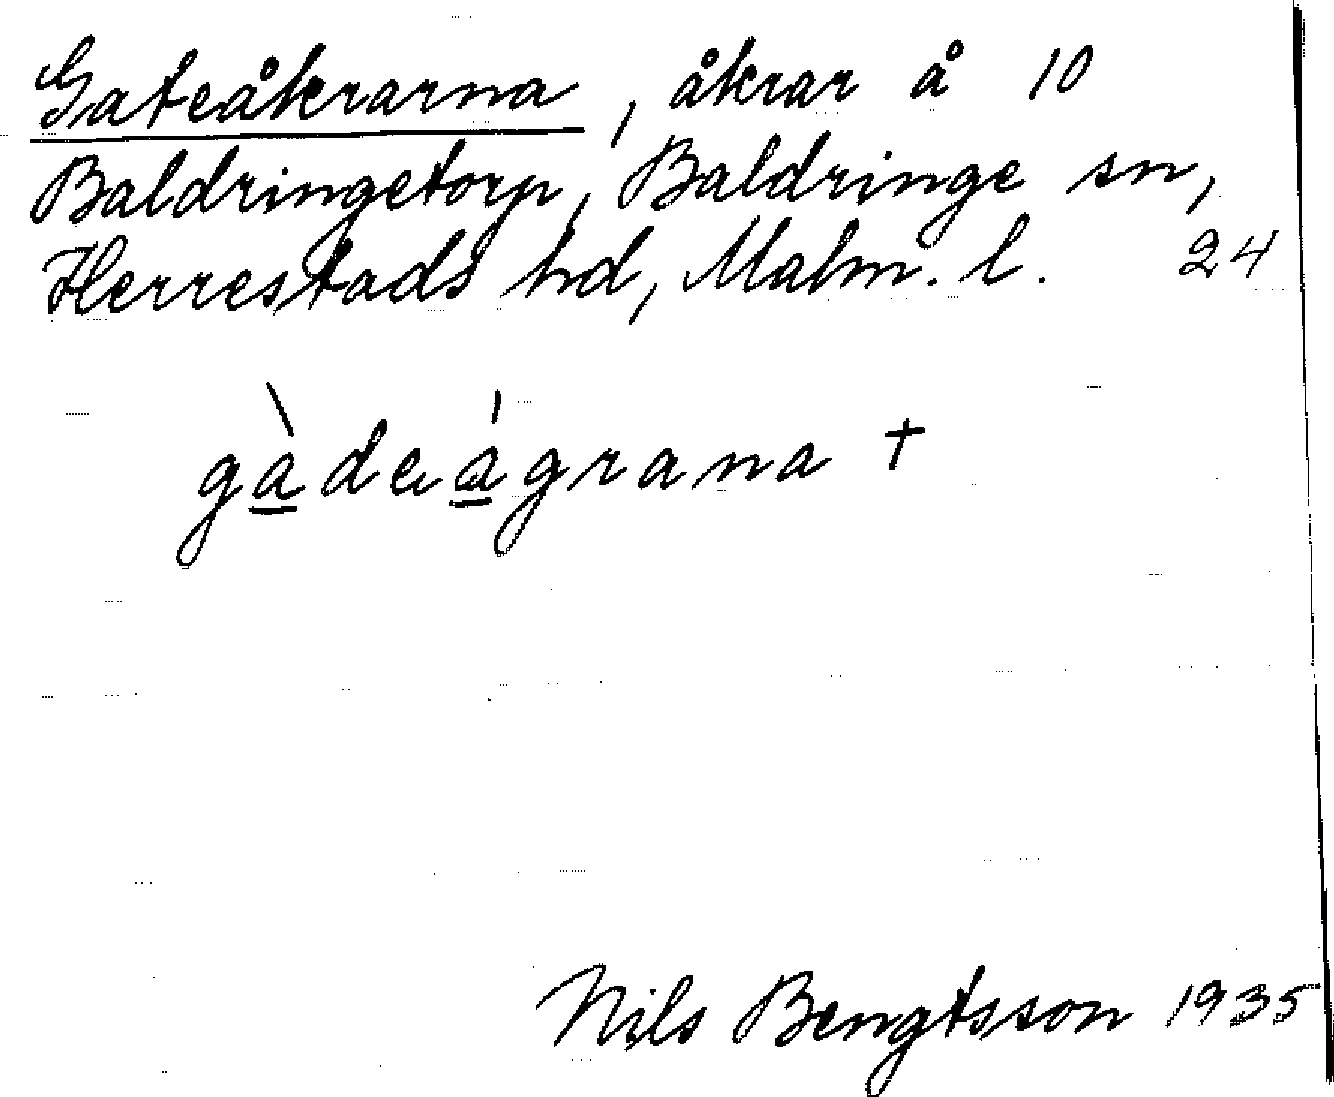 Gateåkrarna, åkrar å 10
Baldringetorp, Baldringe sn,
Herrestads hd, Malm. l. 24
gàdeágrana +
Nils Bengtsson 1935